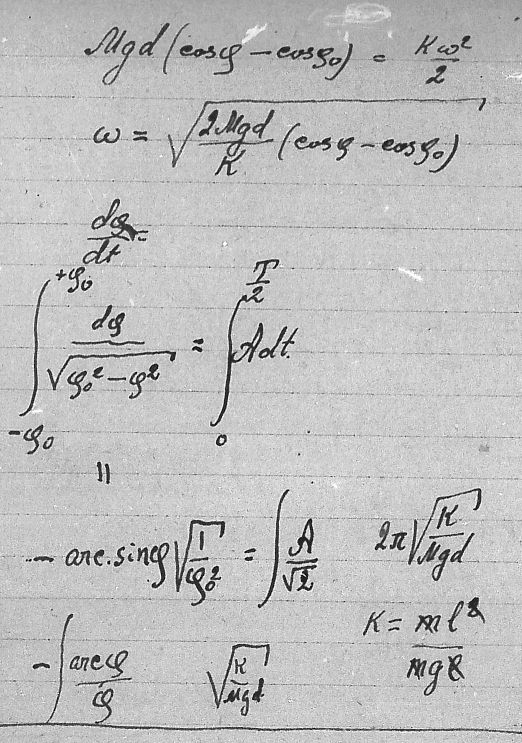 Mgd (cosφ − cosφ₀) = Kω²/2
ω = √(2Mgd/K (cosφ − cosφ₀))
dφ/dt =
∫_{-φ₀}^{+φ₀} dφ/√(φ₀² − φ²) = ∫_{0}^{T/2} A dt.
||
− arc.sinφ √(1/φ₀²) = ∫ A/√2 2π √(K/Mgd)
K = ml²/mgl
− ∫ arcφ/φ √(K/Mgd)